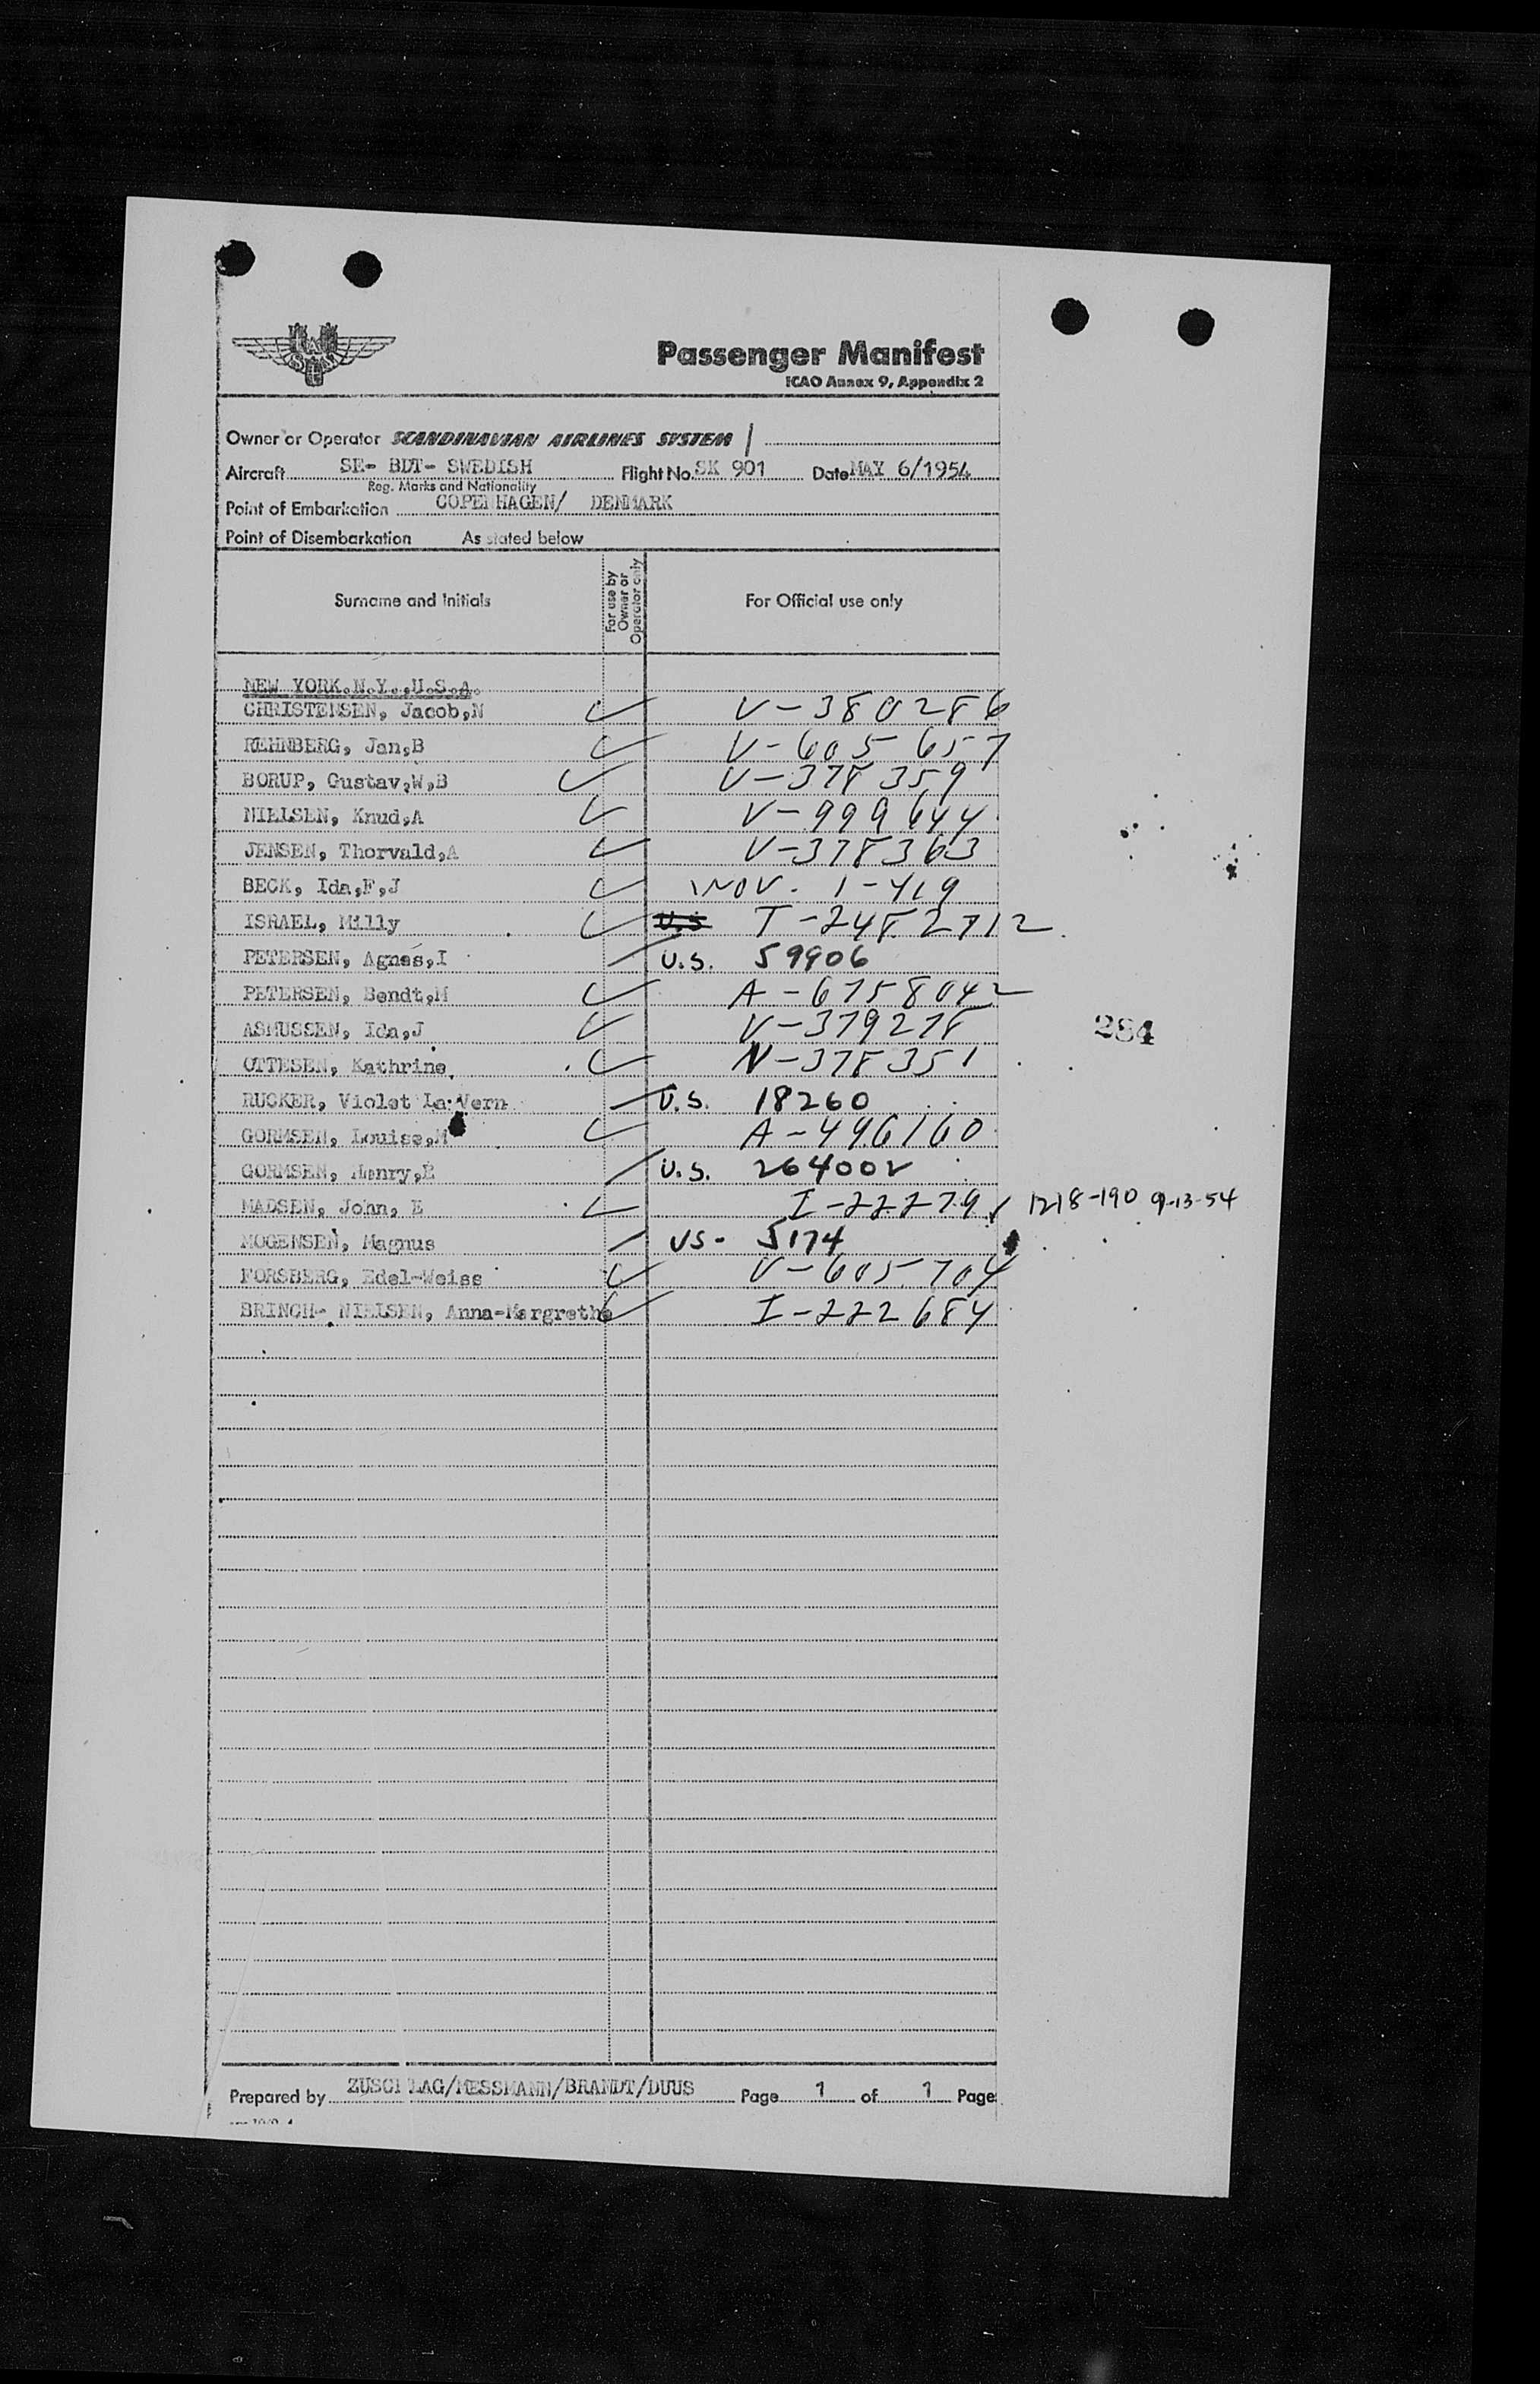 Passenger Manifest
ICAO Annex 9, Appendix 2
Owner or Operator SCANDINAVIAN AIRLINES SYSTEM /
Aircraft SE- BDT- SWEDISH Flight No. SK 901 Date MAY 6/1954
Reg. Marks and Nationality
Point of Embarkation COPENHAGEN/ DENMARK
Point of Disembarkation As stated below
Surname and Initials For use by Owner or Operator only For Official use only
NEW YORK.N.Y.,U.S.A.
CHRISTENSEN, Jacob,N V-380286
REHNBERG, Jan,B V-605657
BORUP, Gustav,W,B V-378359
NIELSEN, Knud,A V-999644
JENSEN, Thorvald,A V-378363
BECK, Ida,F,J 1-419
ISRAEL, Milly U.S T-2482712
PETERSEN, Agnes,I U.S. 59906
PETERSEN, Bendt,M A-6758042
ASMUSSEN, Ida,J V-379278
OTTESEN, Kathrine. V-378351
RUCKER, Violet La Vern U.S. 18260
GORMSEN, Louise,M A-496160
GORMSEN, Henry,E U.S. 264002
MADSEN, John, E I-222791 1218-190 9-13-54
MOGENSEN, Magnus US- 5174
FORSBERG, Edel-Weiss V-605704
BRINCH- NIELSEN, Anna-Margrethe I-222684
284
Prepared by ZUSCHLAG/MESSMANN/BRANDT/DUUS Page 1 of 1 Page